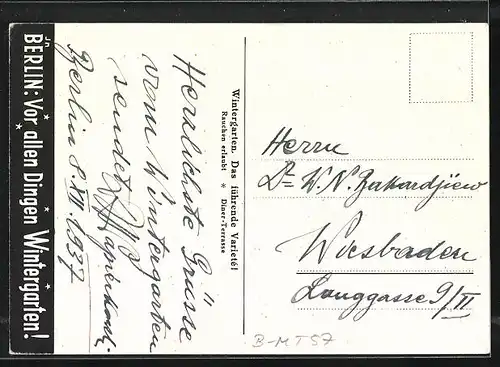 Jn
BERLIN: Vor allen Dingen Wintergarten!
Berlin 8. XII. 1937
Herzlichste Grüsse
vom Wintergarten
sendet
Wintergarten. Das führende Varieté!
Rauchen erlaubt * Diner-Terrasse
Herrn
Dr W. N.
Wiesbaden
Langgasse 9/II
B-MT57